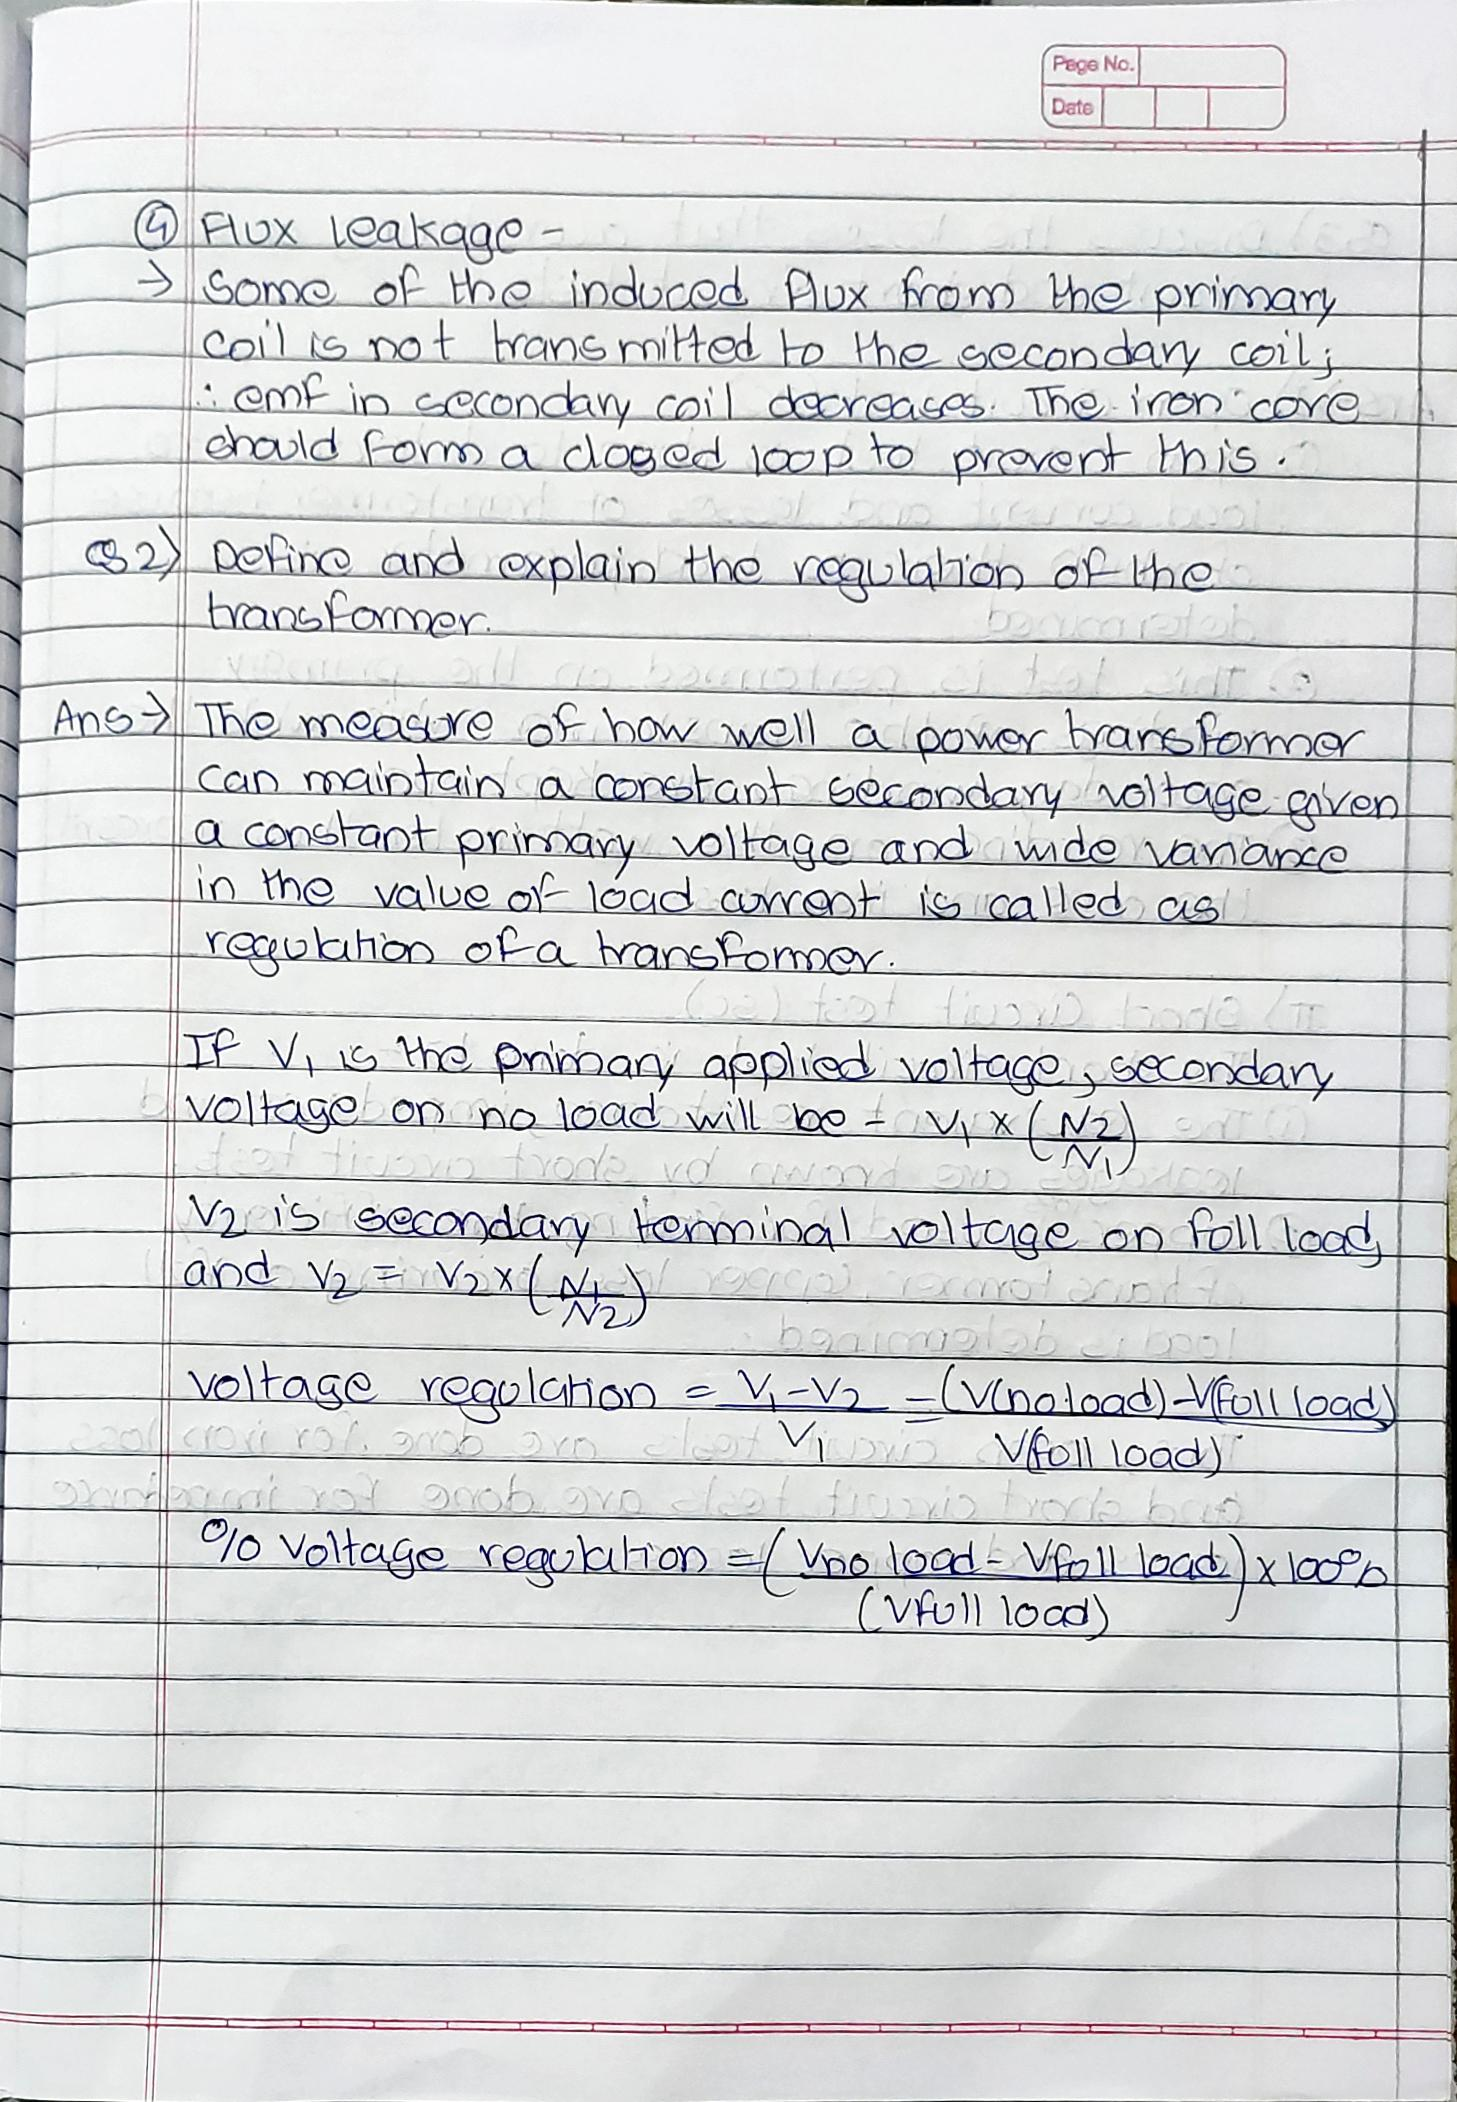 Page No.
Date
④ Flux leakage -
→ Some of the induced flux from the primary
coil is not transmitted to the secondary coil;
∴ emf in secondary coil decreases. The iron core
should form a closed loop to prevent this.
Q2) Define and explain the regulation of the
transformer.
Ans → The measure of how well a power transformer
can maintain a constant secondary voltage given
a constant primary voltage and wide variance
in the value of load current is called as
regulation of a transformer.
If V1 is the primary applied voltage, secondary
voltage on no load will be = V1 × (N2/N1)
V2 is secondary terminal voltage on full load,
and V2 = V2 × (N1/N2)
voltage regulation = V1-V2/V1 = (V(no load)-V(full load)/V(full load)
% voltage regulation = (Vno load - Vfull load/(Vfull load)) × 100%